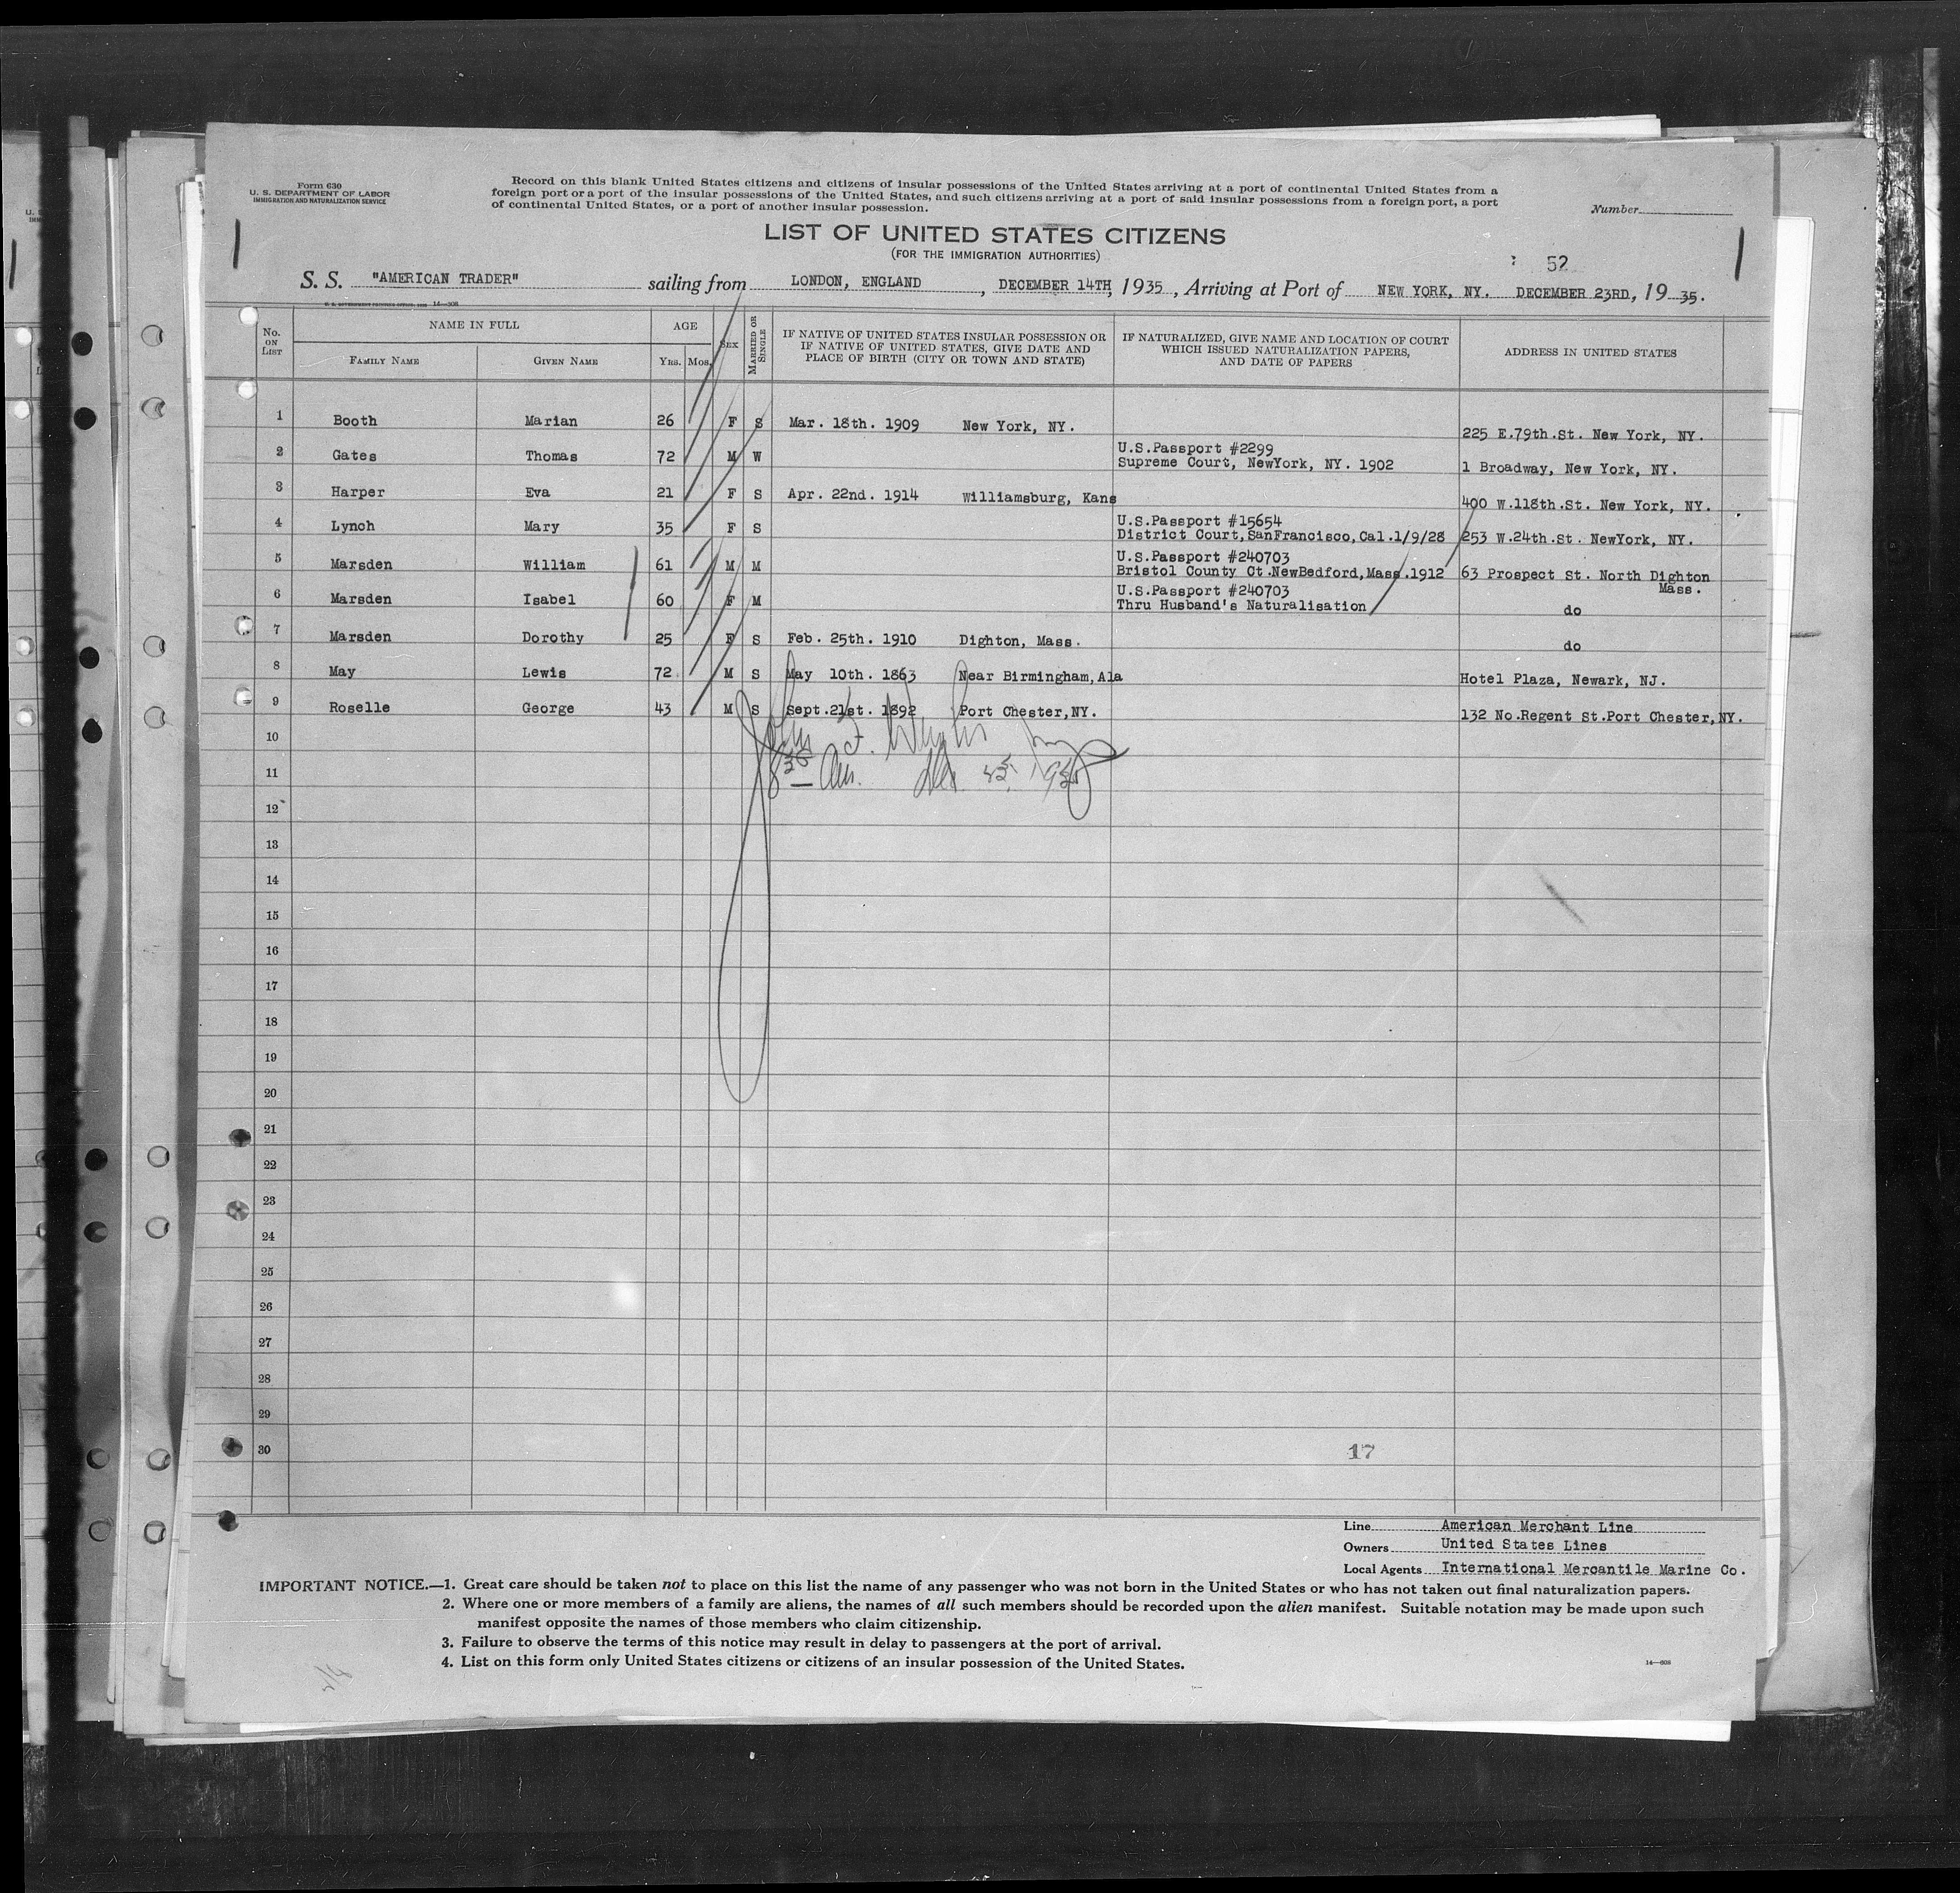 Form 630
U. S. DEPARTMENT OF LABOR
IMMIGRATION AND NATURALIZATION SERVICE
Record on this blank United States citizens and citizens of insular possessions of the United States arriving at a port of continental United States from a
foreign port or a port of the insular possessions of the United States, and such citizens arriving at a port of said insular possessions from a foreign port, a port
of continental United States, or a port of another insular possession.
Number
LIST OF UNITED STATES CITIZENS
(FOR THE IMMIGRATION AUTHORITIES)
52
S. S. "AMERICAN TRADER" sailing from LONDON, ENGLAND, DECEMBER 14TH, 1935, Arriving at Port of NEW YORK, NY. DECEMBER 23RD, 19 35.
No. ON LIST
NAME IN FULL
FAMILY NAME
GIVEN NAME
AGE
YRS. MOS.
SEX
MARRIED OR SINGLE
IF NATIVE OF UNITED STATES INSULAR POSSESSION OR
IF NATIVE OF UNITED STATES, GIVE DATE AND
PLACE OF BIRTH (CITY OR TOWN AND STATE)
IF NATURALIZED, GIVE NAME AND LOCATION OF COURT
WHICH ISSUED NATURALIZATION PAPERS,
AND DATE OF PAPERS
ADDRESS IN UNITED STATES
1 Booth Marian 26 F S Mar. 18th. 1909 New York, NY. 225 E.79th.St. New York, NY.
2 Gates Thomas 72 M W U.S.Passport #2299
Supreme Court, NewYork, NY. 1902 1 Broadway, New York, NY.
3 Harper Eva 21 F S Apr. 22nd. 1914 Williamsburg, Kans 400 W.118th.St. New York, NY.
4 Lynch Mary 35 F S U.S.Passport #15654
District Court,SanFrancisco,Cal.1/9/28 253 W.24th.St. NewYork, NY.
5 Marsden William 61 M M U.S.Passport #240703
Bristol County Ct.NewBedford,Mass.1912 63 Prospect St. North Dighton
Mass.
6 Marsden Isabel 60 F M U.S.Passport #240703
Thru Husband's Naturalisation do
7 Marsden Dorothy 25 F S Feb. 25th. 1910 Dighton, Mass. do
8 May Lewis 72 M S May 10th. 1863 Near Birmingham,Ala Hotel Plaza, Newark, NJ.
9 Roselle George 43 M S Sept.21st. 1892 Port Chester,NY. 132 No.Regent St.Port Chester,NY.
10
11
12
13
14
15
16
17
18
19
20
21
22
23
24
25
26
27
28
29
30
17
Line American Merchant Line
Owners United States Lines
Local Agents International Mercantile Marine Co.
IMPORTANT NOTICE.—1. Great care should be taken not to place on this list the name of any passenger who was not born in the United States or who has not taken out final naturalization papers.
2. Where one or more members of a family are aliens, the names of all such members should be recorded upon the alien manifest. Suitable notation may be made upon such
manifest opposite the names of those members who claim citizenship.
3. Failure to observe the terms of this notice may result in delay to passengers at the port of arrival.
4. List on this form only United States citizens or citizens of an insular possession of the United States.
14—608